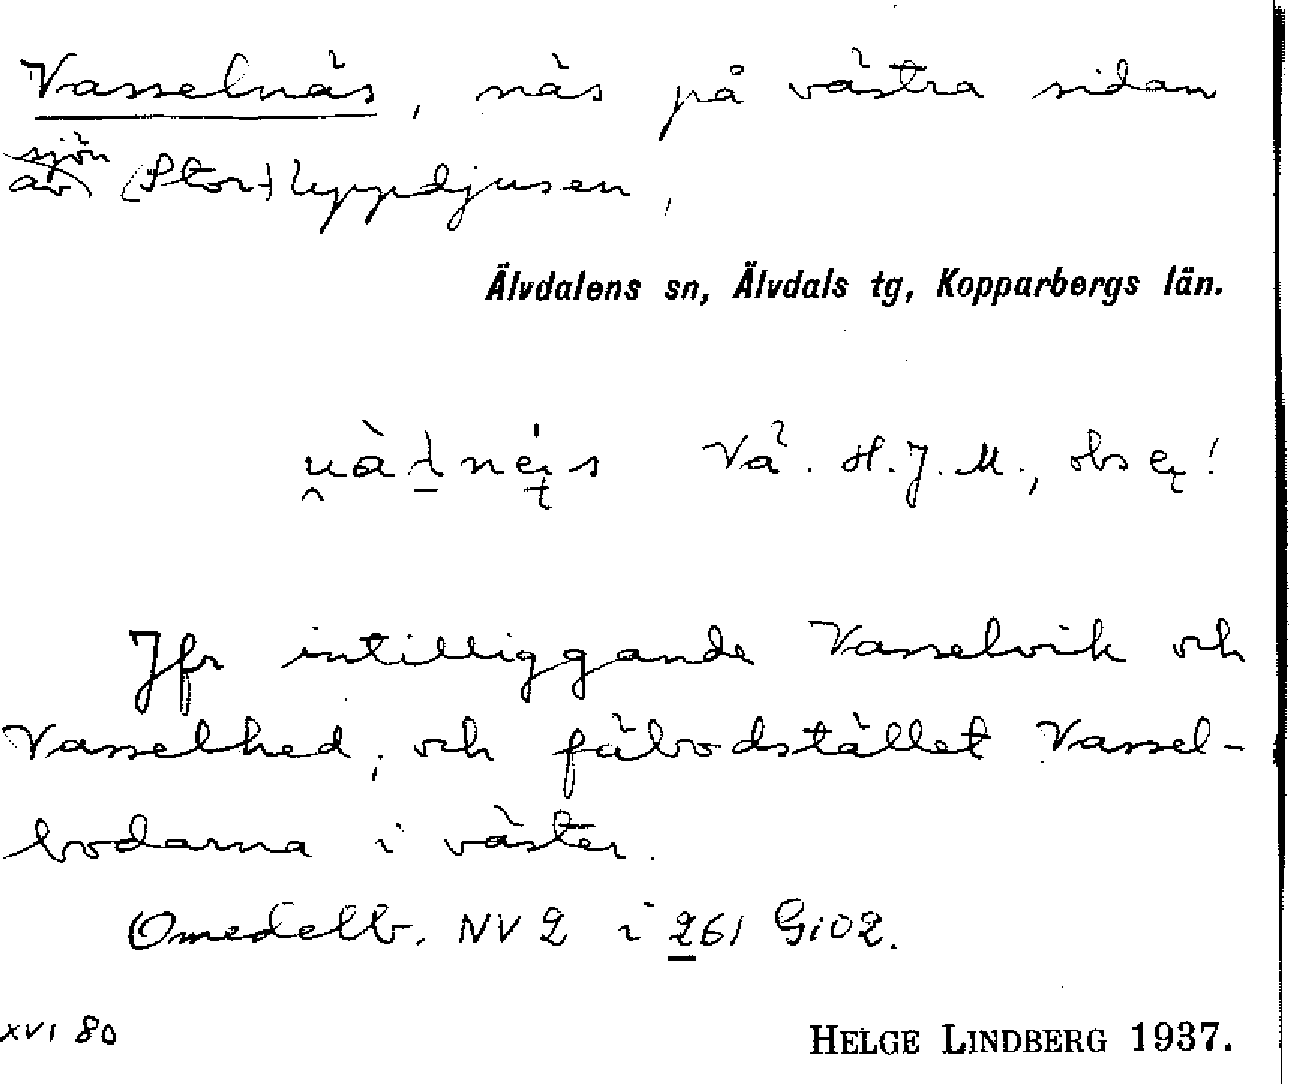 Vasselnäs, näs på västra sidan
av sjön (Stor-) Hyppdjusen,
Älvdalens sn, Älvdals tg, Kopparbergs län.
Vå. H.J.M., obs
Jfr intilliggande Vasselvik och
Vasselhed, och fäbodstället Vassel-
bodarna i väster.
Omedelb. NV 2 i 261 Gi02.
XVI 80
HELGE LINDBERG 1937.